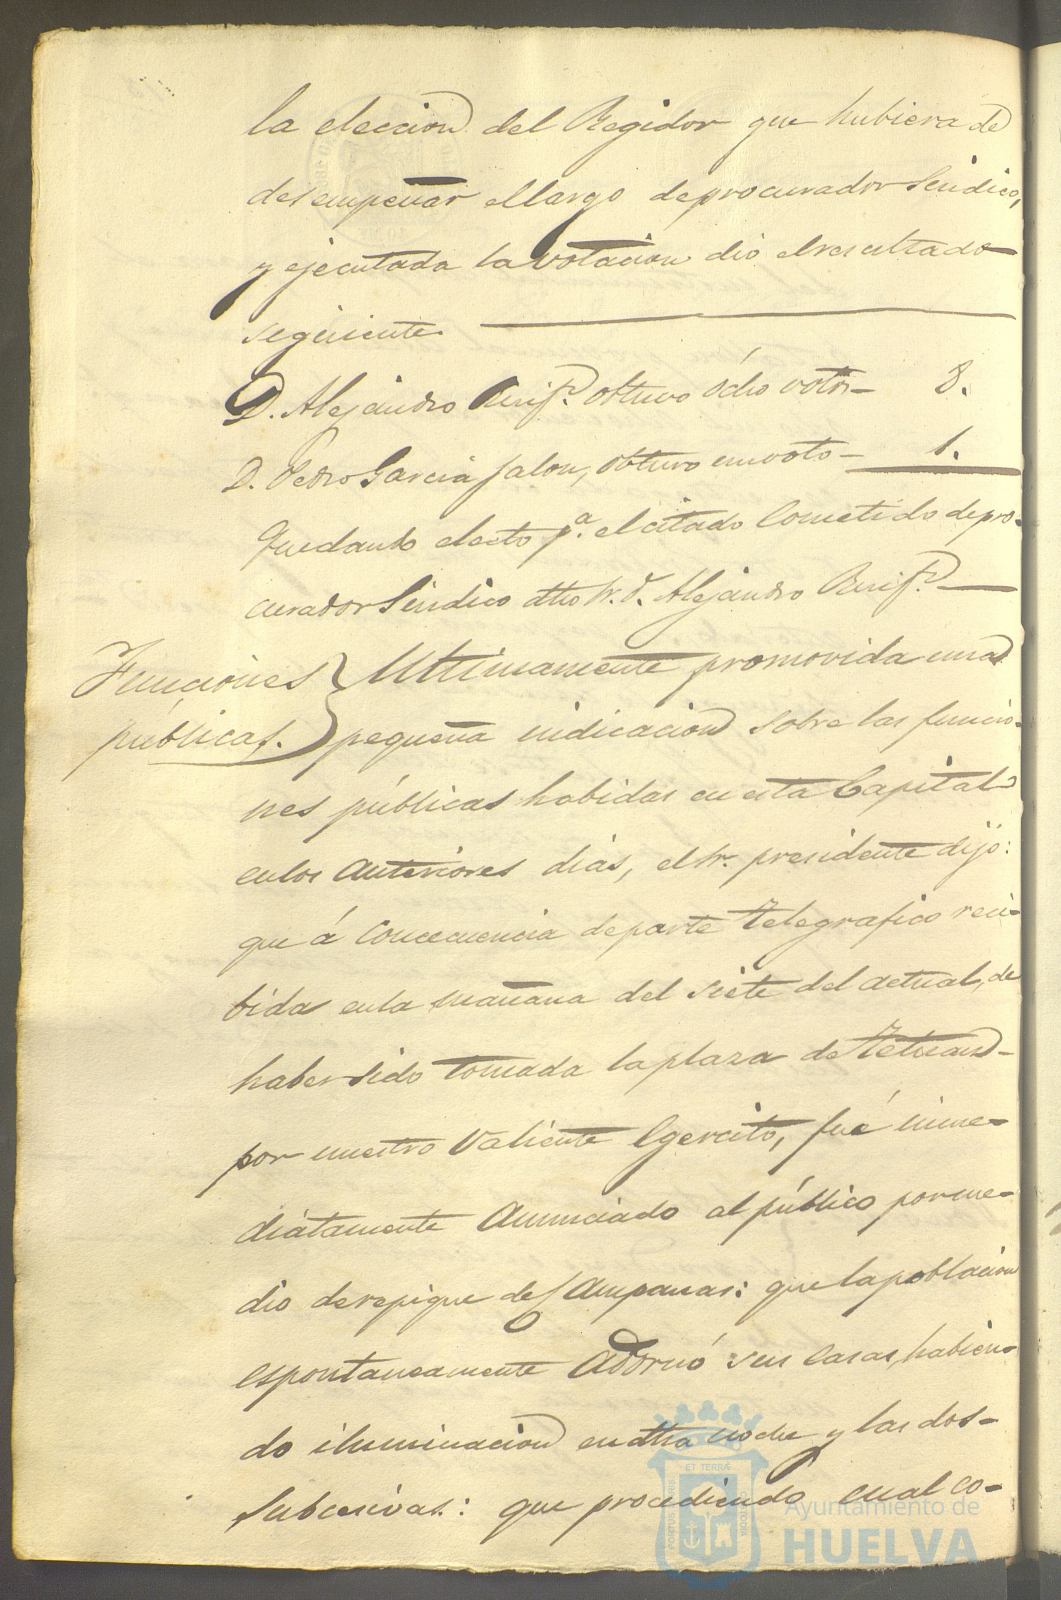 la eleccion del Regidor que hubiera de
desempeñar elCargo deprocurador Sindico,
y ejecutada la votacion dió elresultado
seguiente
D. Alejandro obtuvo Ocho votos— 8.
D. Pedro Garcia Jalon, obtuvo unvoto— 1.
Quedando electo p.ª elcitado Cometido depro-
curador Sindico dho Sr. D. Alejandro
Funciones
públicas.
Ultimamente promovida una
pequeña indicacion sobre las funcio-
nes públicas habidas en esta Capital
enlos anteriores dias, elSr. presidente dijó:
que á concecuencia departe telegrafico reci-
bido enla mañana del siete del actual, de
haber sido tomada la plaza de Tetuan—
por nuestro Valiente Egercito, fué inme-
diatamente Anunciado al público porme-
dio derepique de Campanas: que lapoblacion
espontaneamente Adornó sus casas, habien-
do iluminacion en dha noche y las dos—
Subcesivas: que procediendo cual co-
ET TERRÆ
Ayuntamiento de
HUELVA